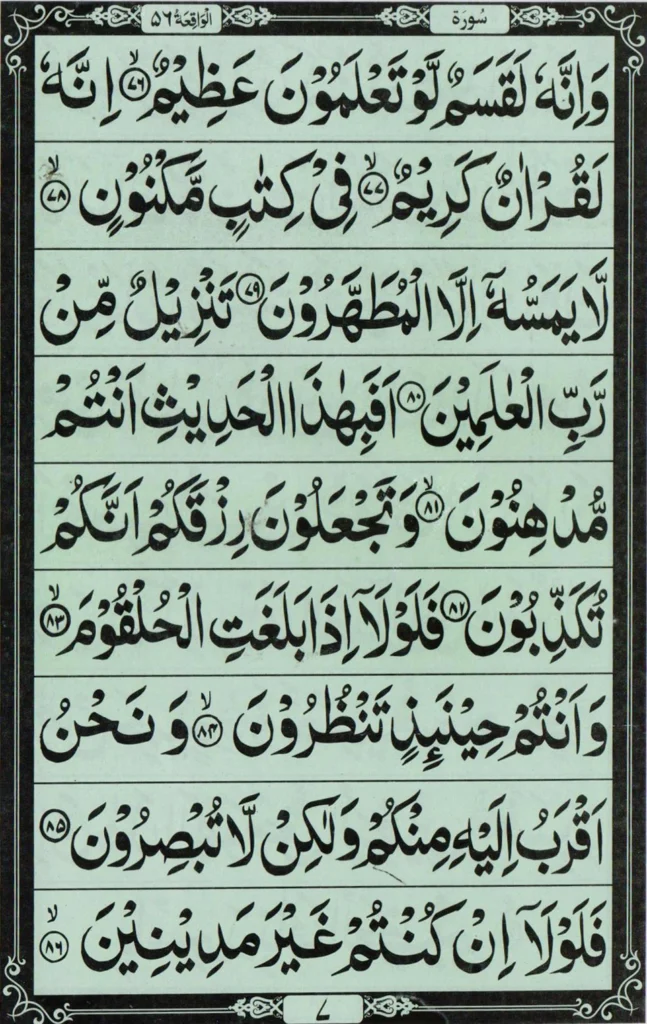 سُورَة الْوَاقِعَة ٥٦
وَاِنَّهٗ لَقَسَمٌ لَّوْ تَعْلَمُوْنَ عَظِيْمٌ ۙ﴿٧٦﴾ اِنَّهٗ
لَقُرْاٰنٌ كَرِيْمٌ ۙ﴿٧٧﴾ فِيْ كِتٰبٍ مَّكْنُوْنٍ ۙ﴿٧٨﴾
لَّا يَمَسُّهٗٓ اِلَّا الْمُطَهَّرُوْنَ ﴿٧٩﴾ تَنْزِيْلٌ مِّنْ
رَّبِّ الْعٰلَمِيْنَ ﴿٨٠﴾ اَفَبِهٰذَا الْحَدِيْثِ اَنْتُمْ
مُّدْهِنُوْنَ ۙ﴿٨١﴾ وَتَجْعَلُوْنَ رِزْقَكُمْ اَنَّكُمْ
تُكَذِّبُوْنَ ﴿٨٢﴾ فَلَوْلَآ اِذَا بَلَغَتِ الْحُلْقُوْمَ ۙ﴿٨٣﴾
وَاَنْتُمْ حِيْنَىِٕذٍ تَنْظُرُوْنَ ۙ﴿٨٤﴾ وَنَحْنُ
اَقْرَبُ اِلَيْهِ مِنْكُمْ وَلٰكِنْ لَّا تُبْصِرُوْنَ ﴿٨٥﴾
فَلَوْلَآ اِنْ كُنْتُمْ غَيْرَ مَدِيْنِيْنَ ۙ﴿٨٦﴾
٧